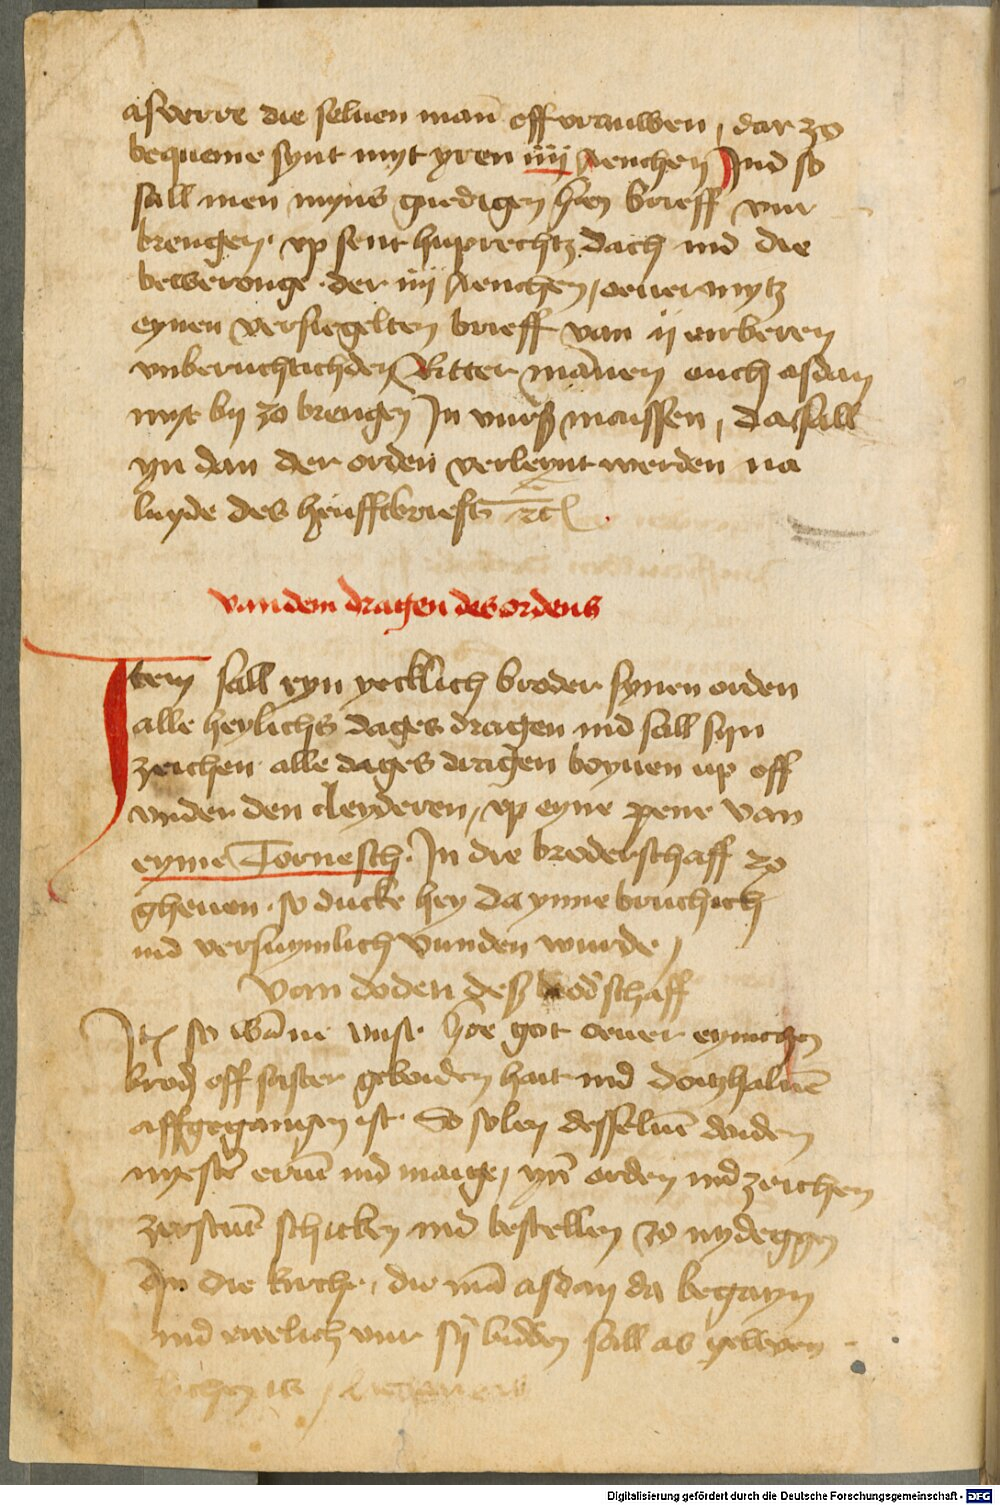 asverre die seluen man̄ off vrauwen, dar zo
bequeme synt myt yren iiij Aenchen Jnd so
sall men myns gnedigen hēn brieff vur
brengen. vp sent huprechtz dach ind die
beweronge. der iiij Aenchen, oeuermytz
eynen versiegelten brieff van ij eirberen
vnberuchtichden Ritter mānen ouch asdan
myt bij zo brengen Jn vurß maissen, da sall
yn dan der orden verleynt werden na
luyde des heufftbriefs etc.
van dem dragen des ordens
Jtem sall eyn yecklich broder synen orden
alle heylichs dages dragen ind sall syn
zeichen alle dages dragen boyuen vp off
vnder den cleyderen, vp eyne pene van
eyme Tornesch. Jn die broderschaff zo
gheuen. so ducke hey da ynne bruchich
ind versuymlich vunden wurde,
Van doden deß brod'schaff
Jtē so wāne vnse hēe got oeuer eynichen
brod' off suster geboiden hait ind doitzhaluē
affgegangen ist. So solen desseluē doiden
nyeste eruē ind maige, yrē orden ind zeichen
zerstūt schicken ind bestellen zo nydeggen
Jn die kirche, die mā asdan da begayn
ind ewelich vur sij bidden sall as gewoen
lichen is,
Digitalisierung gefördert durch die Deutsche Forschungsgemeinschaft - DFG